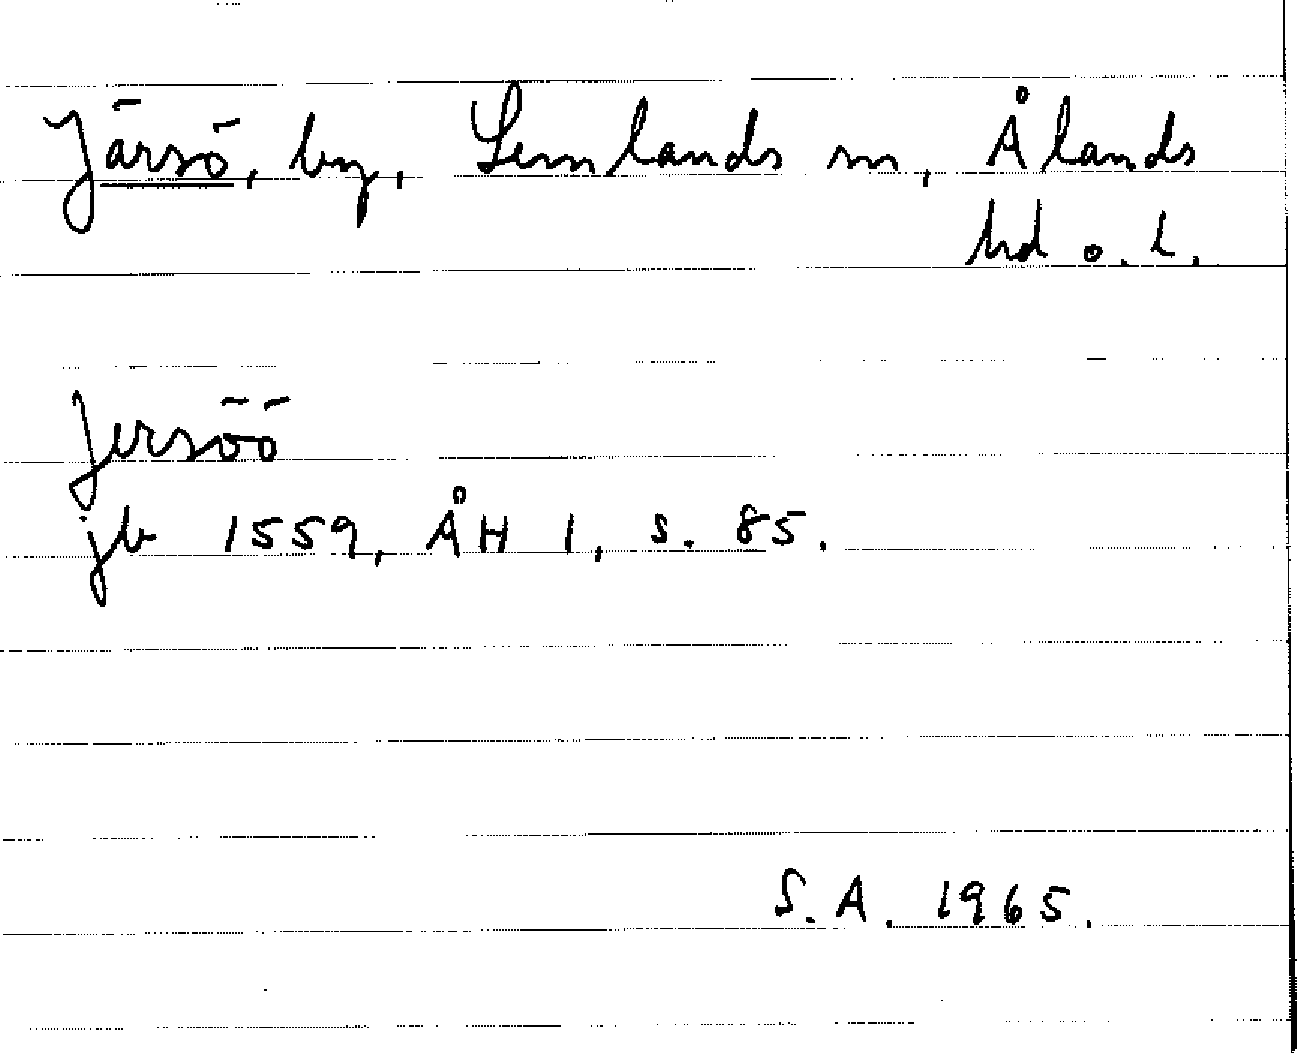 Järsö, by, Lemlands sn, Ålands
hd o. l.
Jersöö
jb 1559, ÅH 1, s. 85.
S.A. 1965.